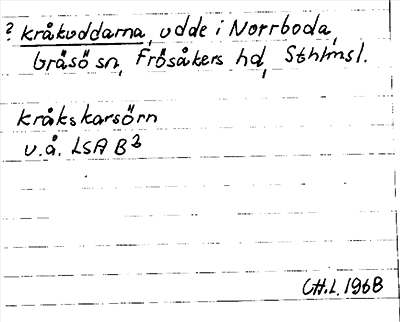 ? kråkuddarna, udde i Norrboda,
Gräsö sn, Frösåkers hd, Sthlmsl.
kråkskarsörn
u.å. LSA B²
CH.L. 1968